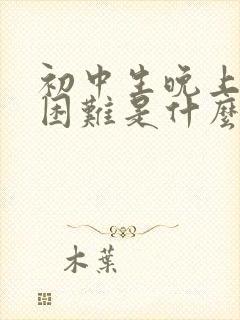 初中生晚上
困難是什麼
木葉